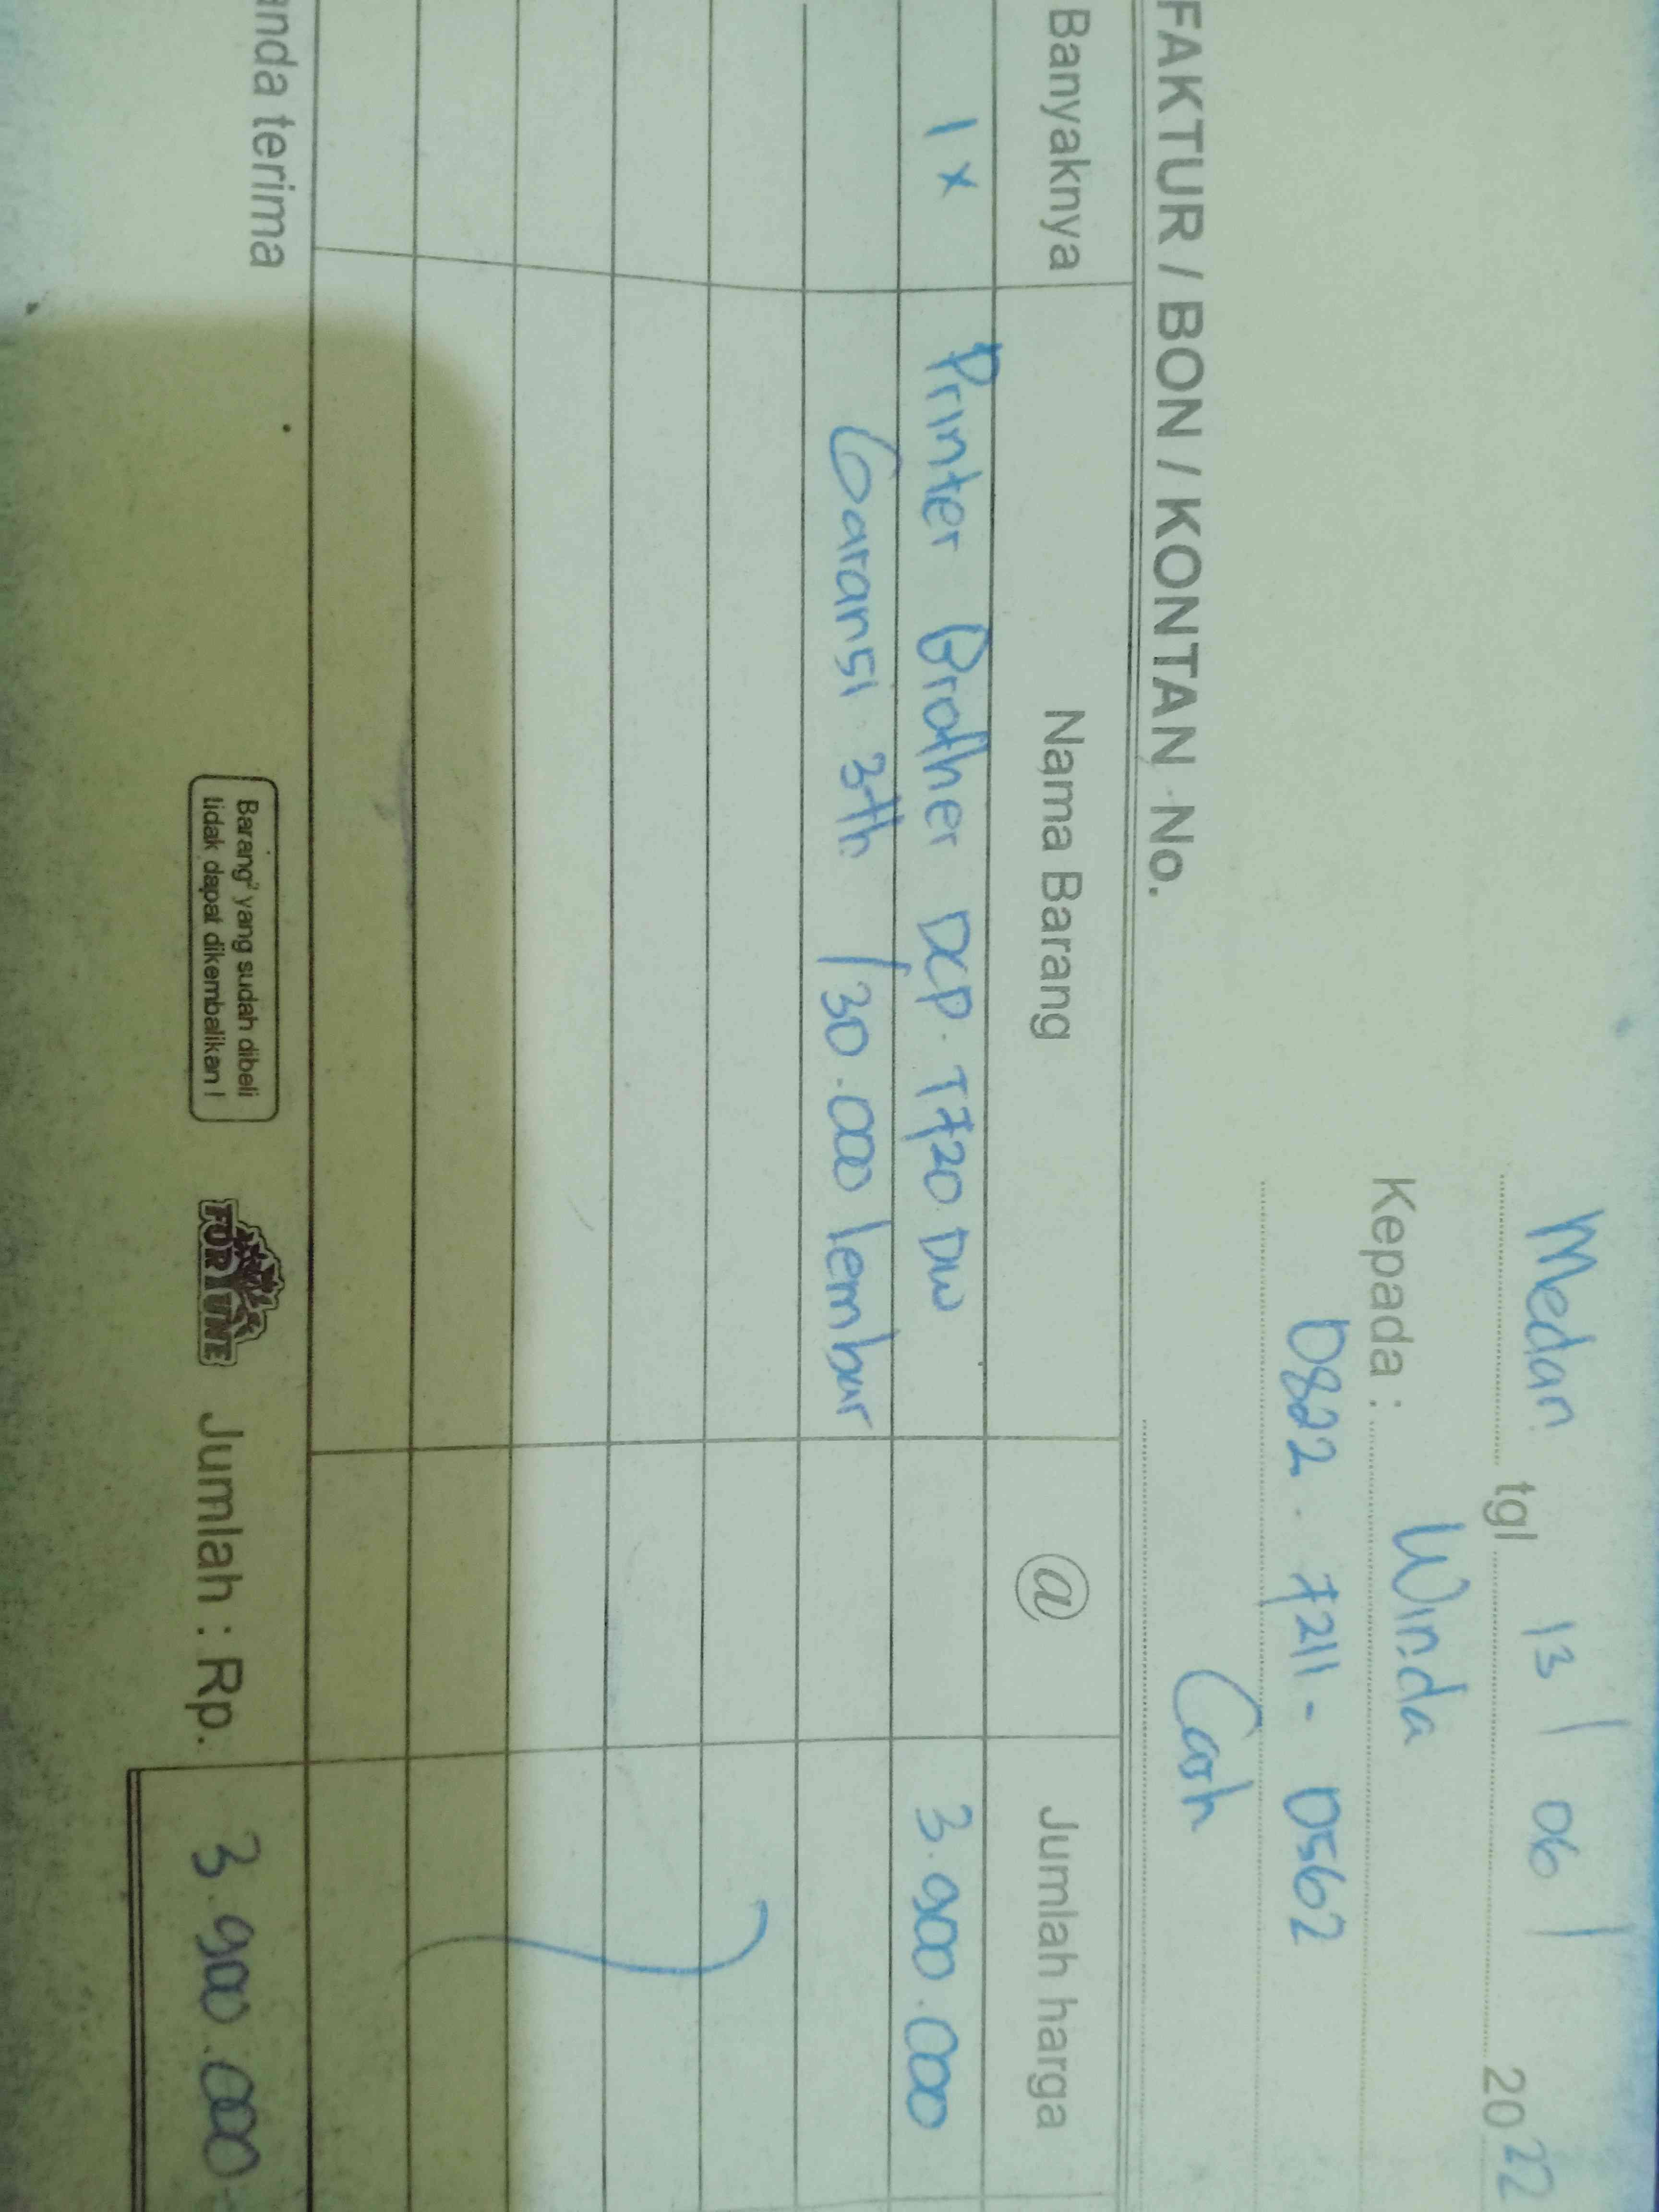 Medan tgl 13 / 06 / 2022
Kepada : Winda
0822 . 7211 - 0562
Cash
FAKTUR / BON / KONTAN No.
Banyaknya Nama Barang @ Jumlah harga
1 x Printer Brother DCP . T720 DW 3.900.000
Garansi 3th / 30.000 lembar
anda terima Barang² yang sudah dibeli tidak dapat dikembalikan ! FORTUNE Jumlah : Rp. 3.900.000